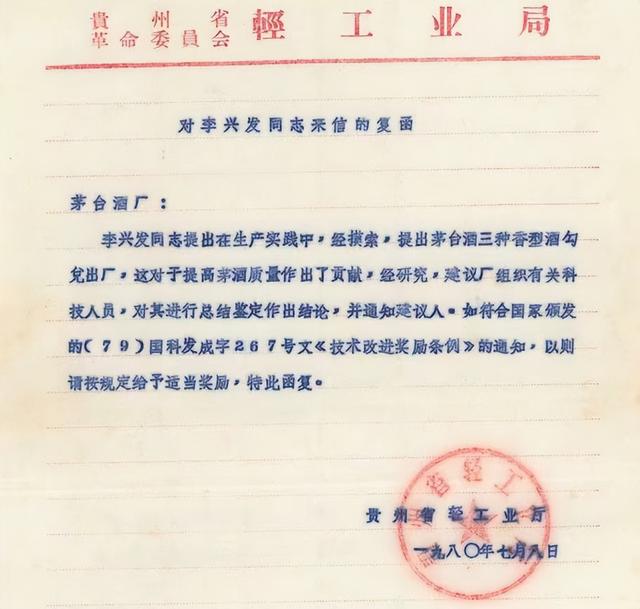 貴州省
革命委員會 輕工业局
对李兴发同志来信的复函
茅台酒厂：
李兴发同志提出在生产实践中，经摸索，提出茅台酒三种香型酒勾
兑出厂，这对于提高茅酒质量作出了贡献，经研究，建议厂组织有关科
技人员，对其进行总结鉴定作出结论，并通知建议人。如符合国家颁发
的（79）国科发成字267号文《技术改进奖励条例》的通知，以则
请按规定给予适当奖励，特此函复。
贵州省轻工业厅
一九八〇年七月八日